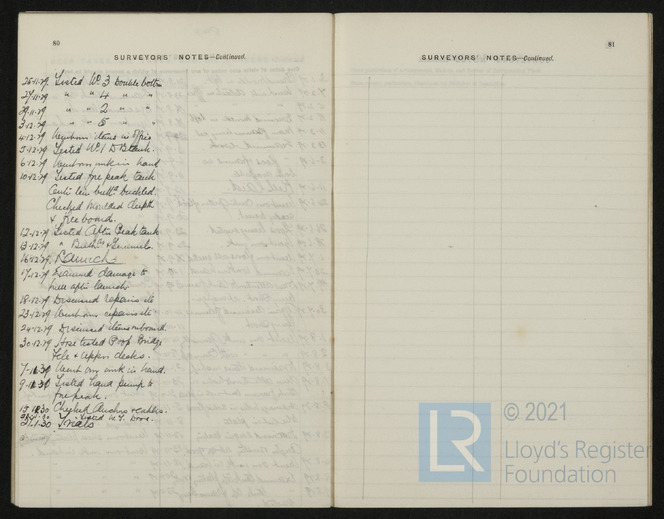 80
SURVEYORS' NOTES—Continued.
26.11.29 Tested No 3 Double bottom
27.11.29 " " 4 " "
29.11.29 " " 2 " "
3.12.29 " " 5 " "
4.12.29 items in
5.12.29 Tested No 1 D B tank.
6.12.29 work in hand
10.12.29 Tested fore peak tank
buckled.
Checked Moulded depth
& freeboard.
12.12.29 Tested After Peak tank
13.12.29 " & Tunnel.
16.12.29 Launch
17.12.29 Examined damage to
after launch
18.12.29 Discussed repairs etc
23.12.29 repairs etc
24.12.29 Discussed items onboard.
30.12.29 Hose tested Poop Bridge
Fcle & Upper decks.
7.1.30 Went over work in hand.
9.1.30 Tested hand pump to
fore peak.
Checked Anchors
Tested W.T. Doors.
21.1.30 Trials
81
SURVEYORS' NOTES—Continued.
LR
© 2021
Lloyd's Register
Foundation